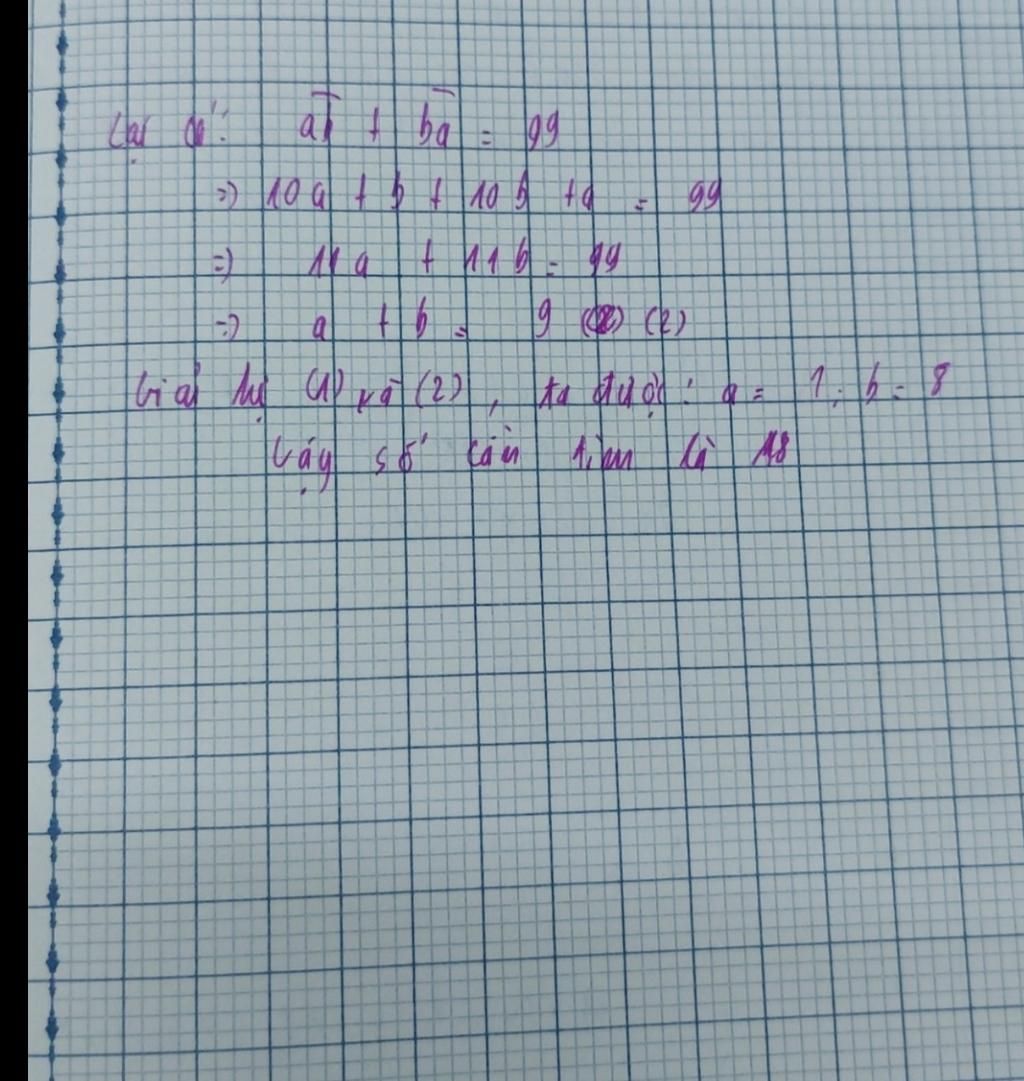 Lại có: ab̅ + ba̅ = 99
=> 10a + b + 10b + a = 99
=> 11a + 11b = 99
=> a + b = 9 (2)
Giải hệ (1) và (2), ta được: a = 1; b = 8
Vậy số cần tìm là 18